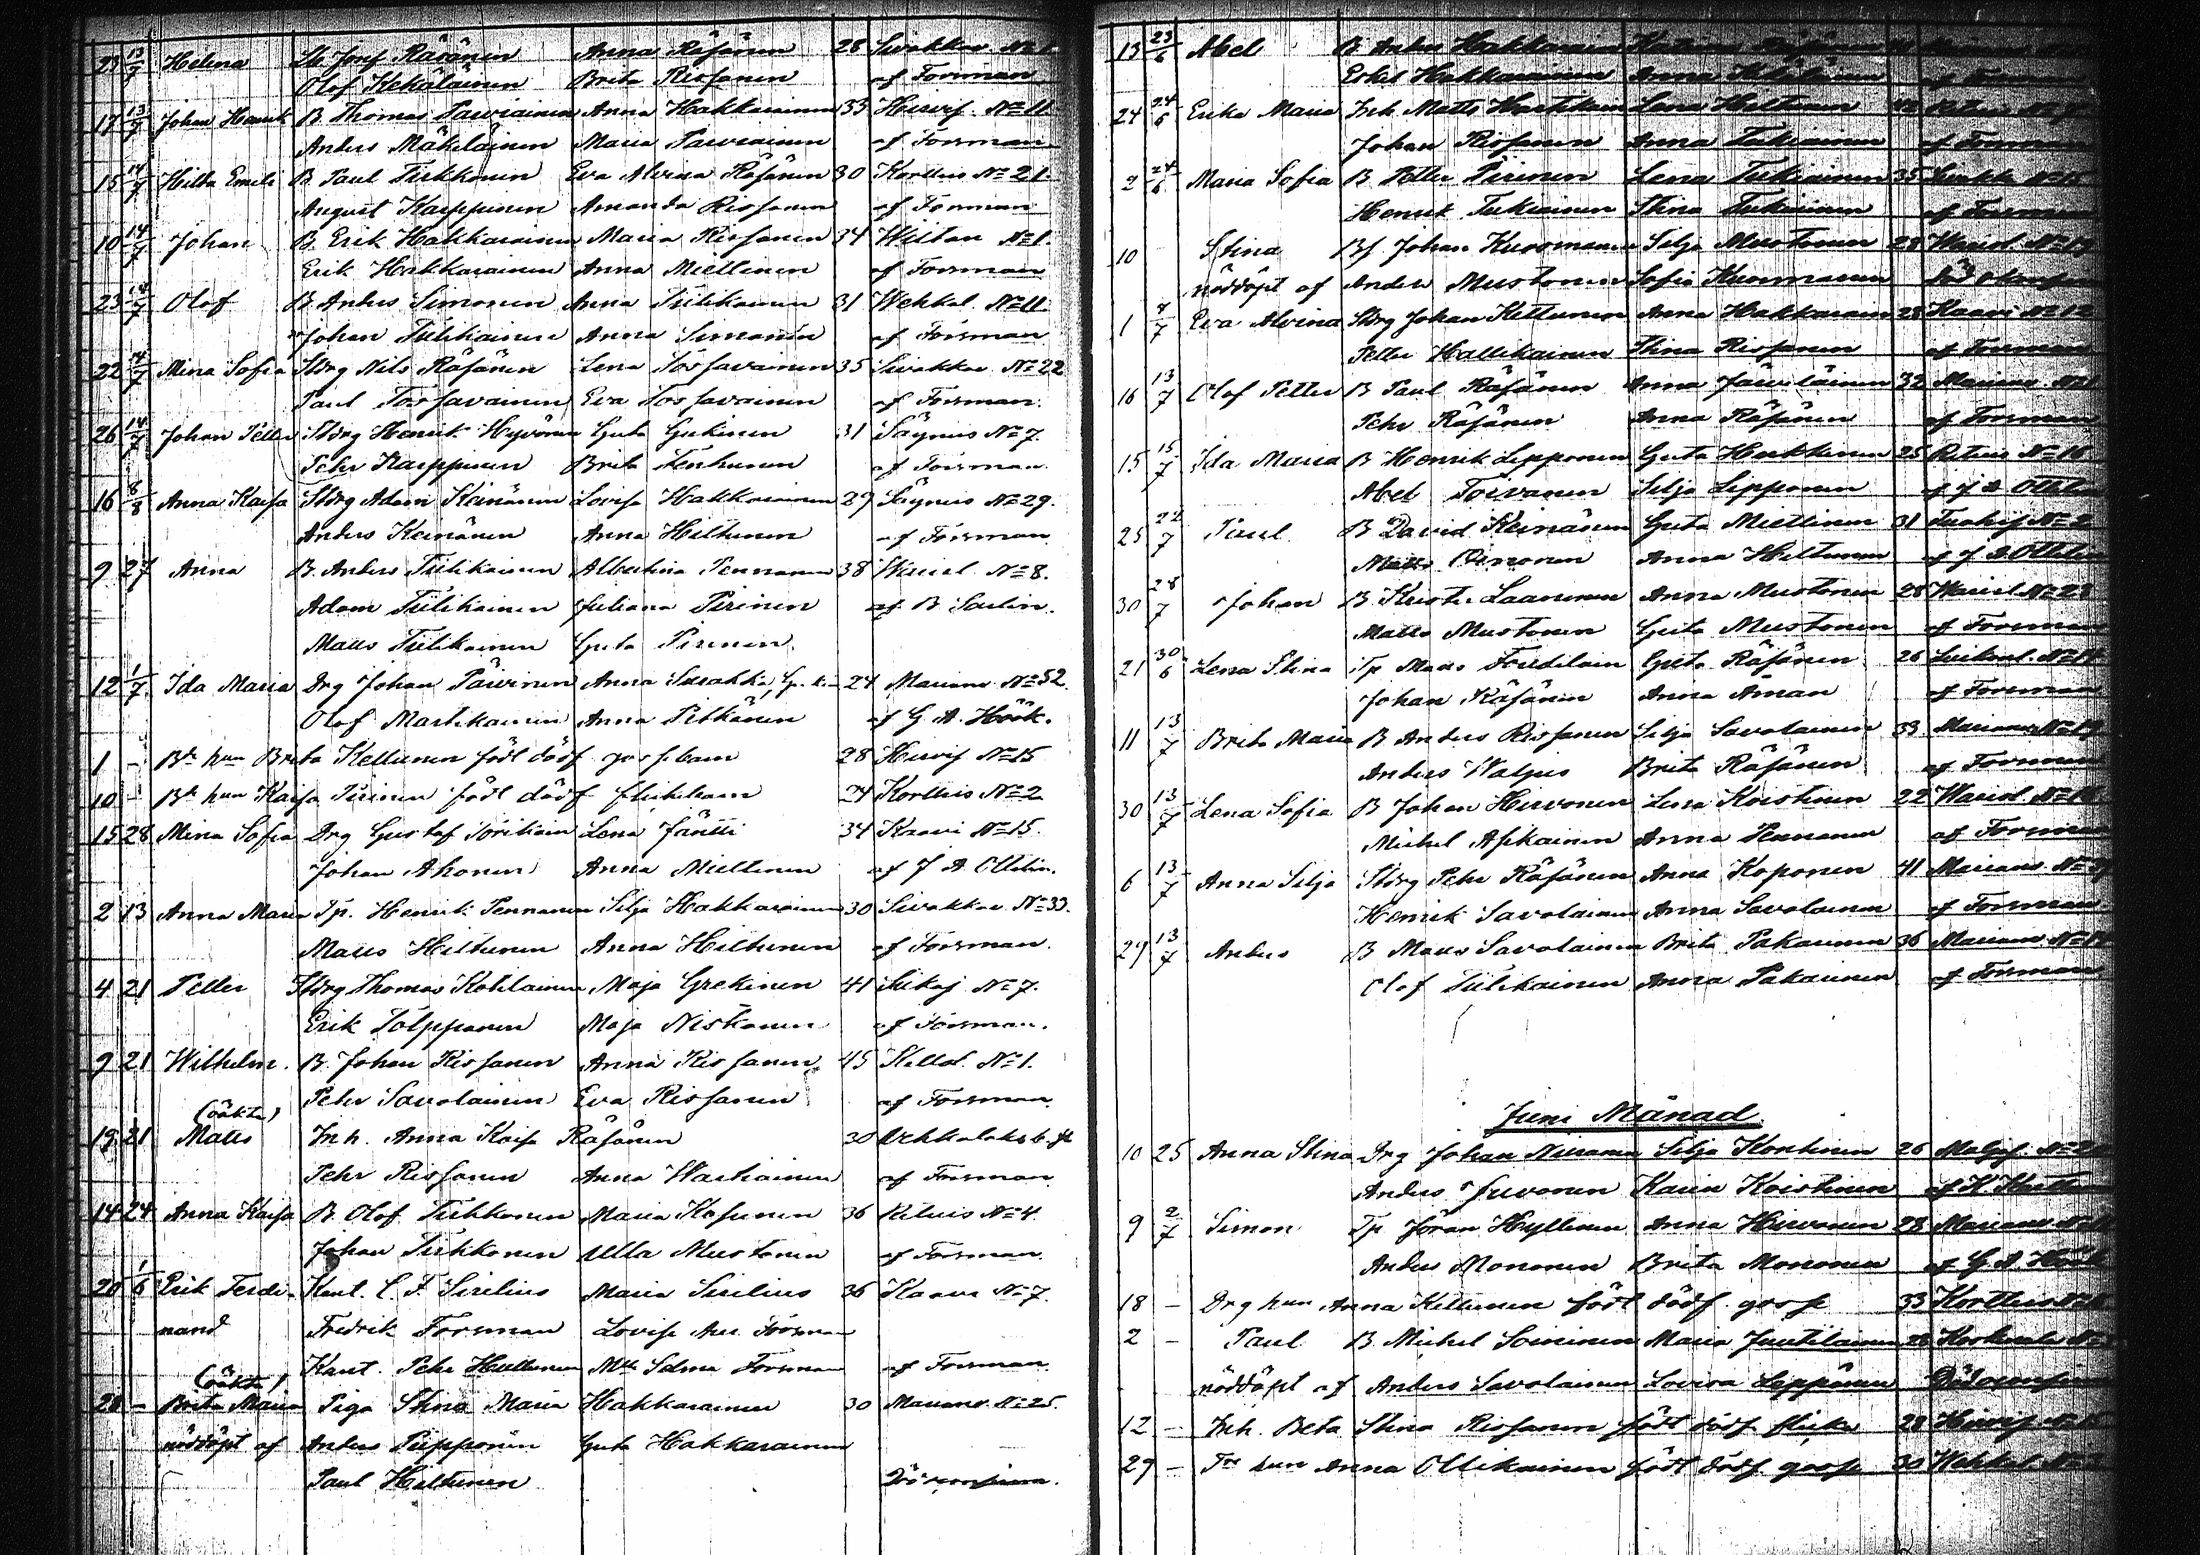 23 13/7 Helena St Josef Räsänen Anna Räsänen 28 Siwakkav. No
Olof Kekäläinen Brita Rissanen af Forsman
17 13/7 Johan Henrik B. Thomas Parviainen Anna Hakkarainen 33 Hirvis. No 11.
Anders Mäkeläinen Maria Parviainen af Forsman
15 14/7 Hilda Emeli B. Paul Tirkkonen Eva Alvina Räsänen 30 Kortteis No 21.
August Karppinen Amanda Rissanen af Forsman
10 14/7 Johan B. Erik Hakkarainen Maria Rissanen 34 Wiitan No 1.
Erik Hakkarainen Anna Miettinen af Forsman
23 14/7 Olof B. Anders Simonen Anna Tiilikainen 31 Wehkal. No 11.
Johan Tiilikainen Anna Simonen af Forsman
22 14/7 Mina Sofia Stdrg Nils Räsänen Lena Torsavainen 35 Siwakkav. No 22
Paul Torsavainen Eva Torsavainen af Forsman.
26 14/7 Johan Petter Stdrg Henrik Hyvönen Greta Grekinen 31 Säyneis No 7.
Pehr Karppinen Brita Tenhunen af Forsman.
16 8/8 Anna Kaisa Stdrg Adam Keinänen Lovisa Hakkarainen 29 Säyneis No 29.
Anders Keinänen Anna Hiltunen af Forsman
9 27 Anna B. Anders Tiilikainen Albertina Pennanen 38 Warisl. No 8.
Adam Tiilikainen Juliana Pirinen af B. Sarlin.
Matts Tiilikainen Greta Pirinen.
12 1/7. Ida Maria Drg Johan Päivinen Anna 24 Marianv. No 52.
Olof Martikainen Anna Pitkänen af G. A. Höök.
1 – Bds hun Brita Kettunen född död gossebarn 28 Hirvis. No 15
10 – Bds hun Kaisa Pirinen född död flickebarn 24 Kortteis No 2
15 28 Mina Sofia Drg Gustaf Lena Jäntti 34 Kaavi No 15.
Johan Ahonen Anna Miettinen af J A Ottelin.
2 13 Anna Maria Tp. Henrik Pennanen Silja Hakkarainen 30 Siwakkav. No 33.
Matts Hiltunen Anna Hiltunen af Forsman.
4 21 Petter Stdrg Thomas Kohlainen Maja Grekinen 41 Siikaj. No 7.
Erik Tolppanen Maja Niskanen af Forsman.
9 21 Wilhelm. B. Johan Rissanen Anna Rissanen 45 No 1.
Pehr Savolainen Eva Rissanen af Forsman.
(oäkta)
19 21 Matts Inh. Anna Kaisa Räsänen 30 Vehkalaks
Pehr Rissanen Anna Wartiainen af Forsman
14 24 Anna Kaisa B. Olof Tirkkonen Maria Kosunen 36 Retuis No 4.
Johan Tirkkonen Ulla Mustonen af Forsman.
20 1/6 Erik Ferdi- Kant. C. F. Sirelius Maria Sirelius 36 Kaavi No 7.
nand Fredrik Forsman Lovise Forsman
Kant. Pehr Huttunen Mll Selma Forsman af Forsman.
(oäkta)
28 – Brita Maria Piga Stina Maria Hakkarainen 30 Marianv. No 25.
nöddöpt af Anders Tiepponen Greta Hakkarainen
Paul Hiltunen
13 23/6 Abel B. Anders Hakkarainen
Erkel Hakkarainen Anna af Forsman
24 24/6 Erika Maria Inh. Matts Lena Hiltunen
Johan Rissanen Anna Tukiainen af Forsman
2 24/6 Maria Sofia B Petter Pirinen Lena Tukiainen 35
Henrik Tukiainen Stina Tukiainen af Forsman
10 Stina Bs. Johan Kuosmanen Silja Mustonen 28 Warisl. No 19
nöddöpt af Anders Mustonen Sofia Kuosmanen
1 7/7 Eva Alvina Stdrg Johan Kettunen Anna Hakkarain 28 Kaavi No 12
Petter Hallikainen Stina Rissanen af Forsman
16 13/7 Olof Petter B Paul Räsänen Anna Järviläinen 32 Marianv. No
Pehr Räsänen Anna Räsänen af Forsman
15 15/7 Ida Maria B Henrik Lepponen Greta Hukkinen 25 Retuis No 16
Abel Toivanen Silja Lepponen af J A Ottelin
25 22/7 Paul. B David Keinänen Greta Miettinen 31 No 2
Matts Simonen Anna Hiltunen af J A Ottelin
30 28/7 Johan B Krister Laaninen Anna Mustonen 28 Warisl. No 23
Matts Mustonen Greta Mustonen af Forsman
21 30/6 Lena Stina Tp Matts Greta Räsänen 26 No 14
Johan Räsänen Anna Åman af Forsman
11 13/7 Brita Maria B Anders Rissanen Silja Savolainen 33 Marianv. No 19
Anders Walpus Brita Räsänen af Forsman
30 13/7 Lena Sofia B Johan Hirvonen Lena Koistinen 22 Warisl. No
Mickel Asikainen Anna Pennanen af Forsman
6 13/7 Anna Silja Stdrg Pehr Räsänen Anna Koponen 41 Marianv. No
Henrik Savolainen Anna Savolainen af Forsman
29 13/7 Anders B Matts Savolainen Brita Pakarinen 36 Marianv. No
Olof Tiilikainen Anna Pakarinen af Forsman
Juni Månad.
10 25 Anna Stina Drg Johan Silja Kontinen 26 No 2
Anders Juvonen Karin Koistinen af
9 2/7 Simon Tp Jöran Hyttinen Anna Hirvonen 23 Marianv. No
Anders Mononen Brita Mononen af G. A. Höök
18 – Drg hun Anna Kettunen född död gosse 33 Kortteis
2 – Paul B. Mickel Soininen Maria Juutilainen 28 No
nöddöpt af Anders Savolainen Lovisa Leppänen
12 – Inh. Beta Stina Rissanen född död flicka 28 Hirvis. No
29 – hun Anna Ollikainen född död gosse 30 Wehkal. No